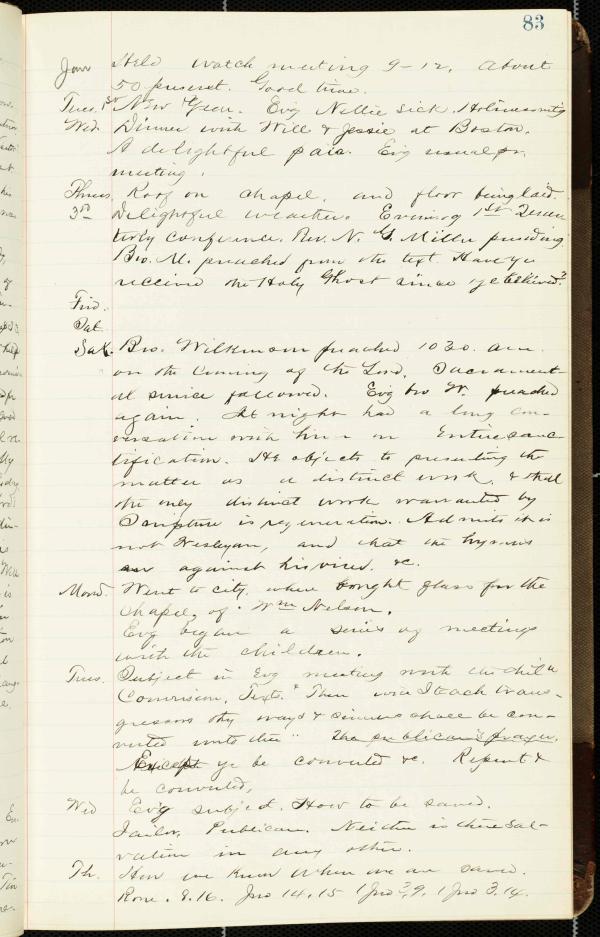 83
Jan Held watch meeting 9-12. About
50 present. Good time.
Tues. 1st New Year. Evg Nellie sick. Holiness mtg
Wed. Dinner with Will & Jessie at Boston.
A delightful pair. Evg usual pr.
meeting.
Thurs. Roof on chapel, and floor being laid.
3rd Delightful weather. Evening 1st Quar
terly conference. Rev. N. G. Miller presiding.
Bro. M. preached from the text Have ye
received the Holy Ghost since ye believed?
Frid.
Sat.
Sab. Bro. Wilkinson preached 10 30. am.
on the Coming of the Lord. Sacrament-
al service followed. Evg bro W. preached
again. At night had a long con-
versation with him on Entire sanc-
tification. He objects to presenting the
matter as a distinct work, & that
the only distinct work warranted by
Scripture is regeneration. Admits it is
not Wesleyan, and that the hymns
are against his views. &c.
Mond. Went to city, where bought glass for the
Chapel, of Wm Nelson.
Evg began a series of meetings
with the children.
Tues. Subject in Evg meeting with the chil n
Conversion. Texts. "Then will I teach trans-
gressors thy ways & sinners shall be con-
verted unto thee" The publican's prayer.
Except ye be converted &c. Repent &
be converted,
Wed Ev'g subject. How to be saved.
Jailor, Publican. Neither is there sal-
vation in any other.
Th. How we know when we are saved.
Rom. 8.16. Jno 14.15 1 Jno 3,9. 1 Jno 3.14.